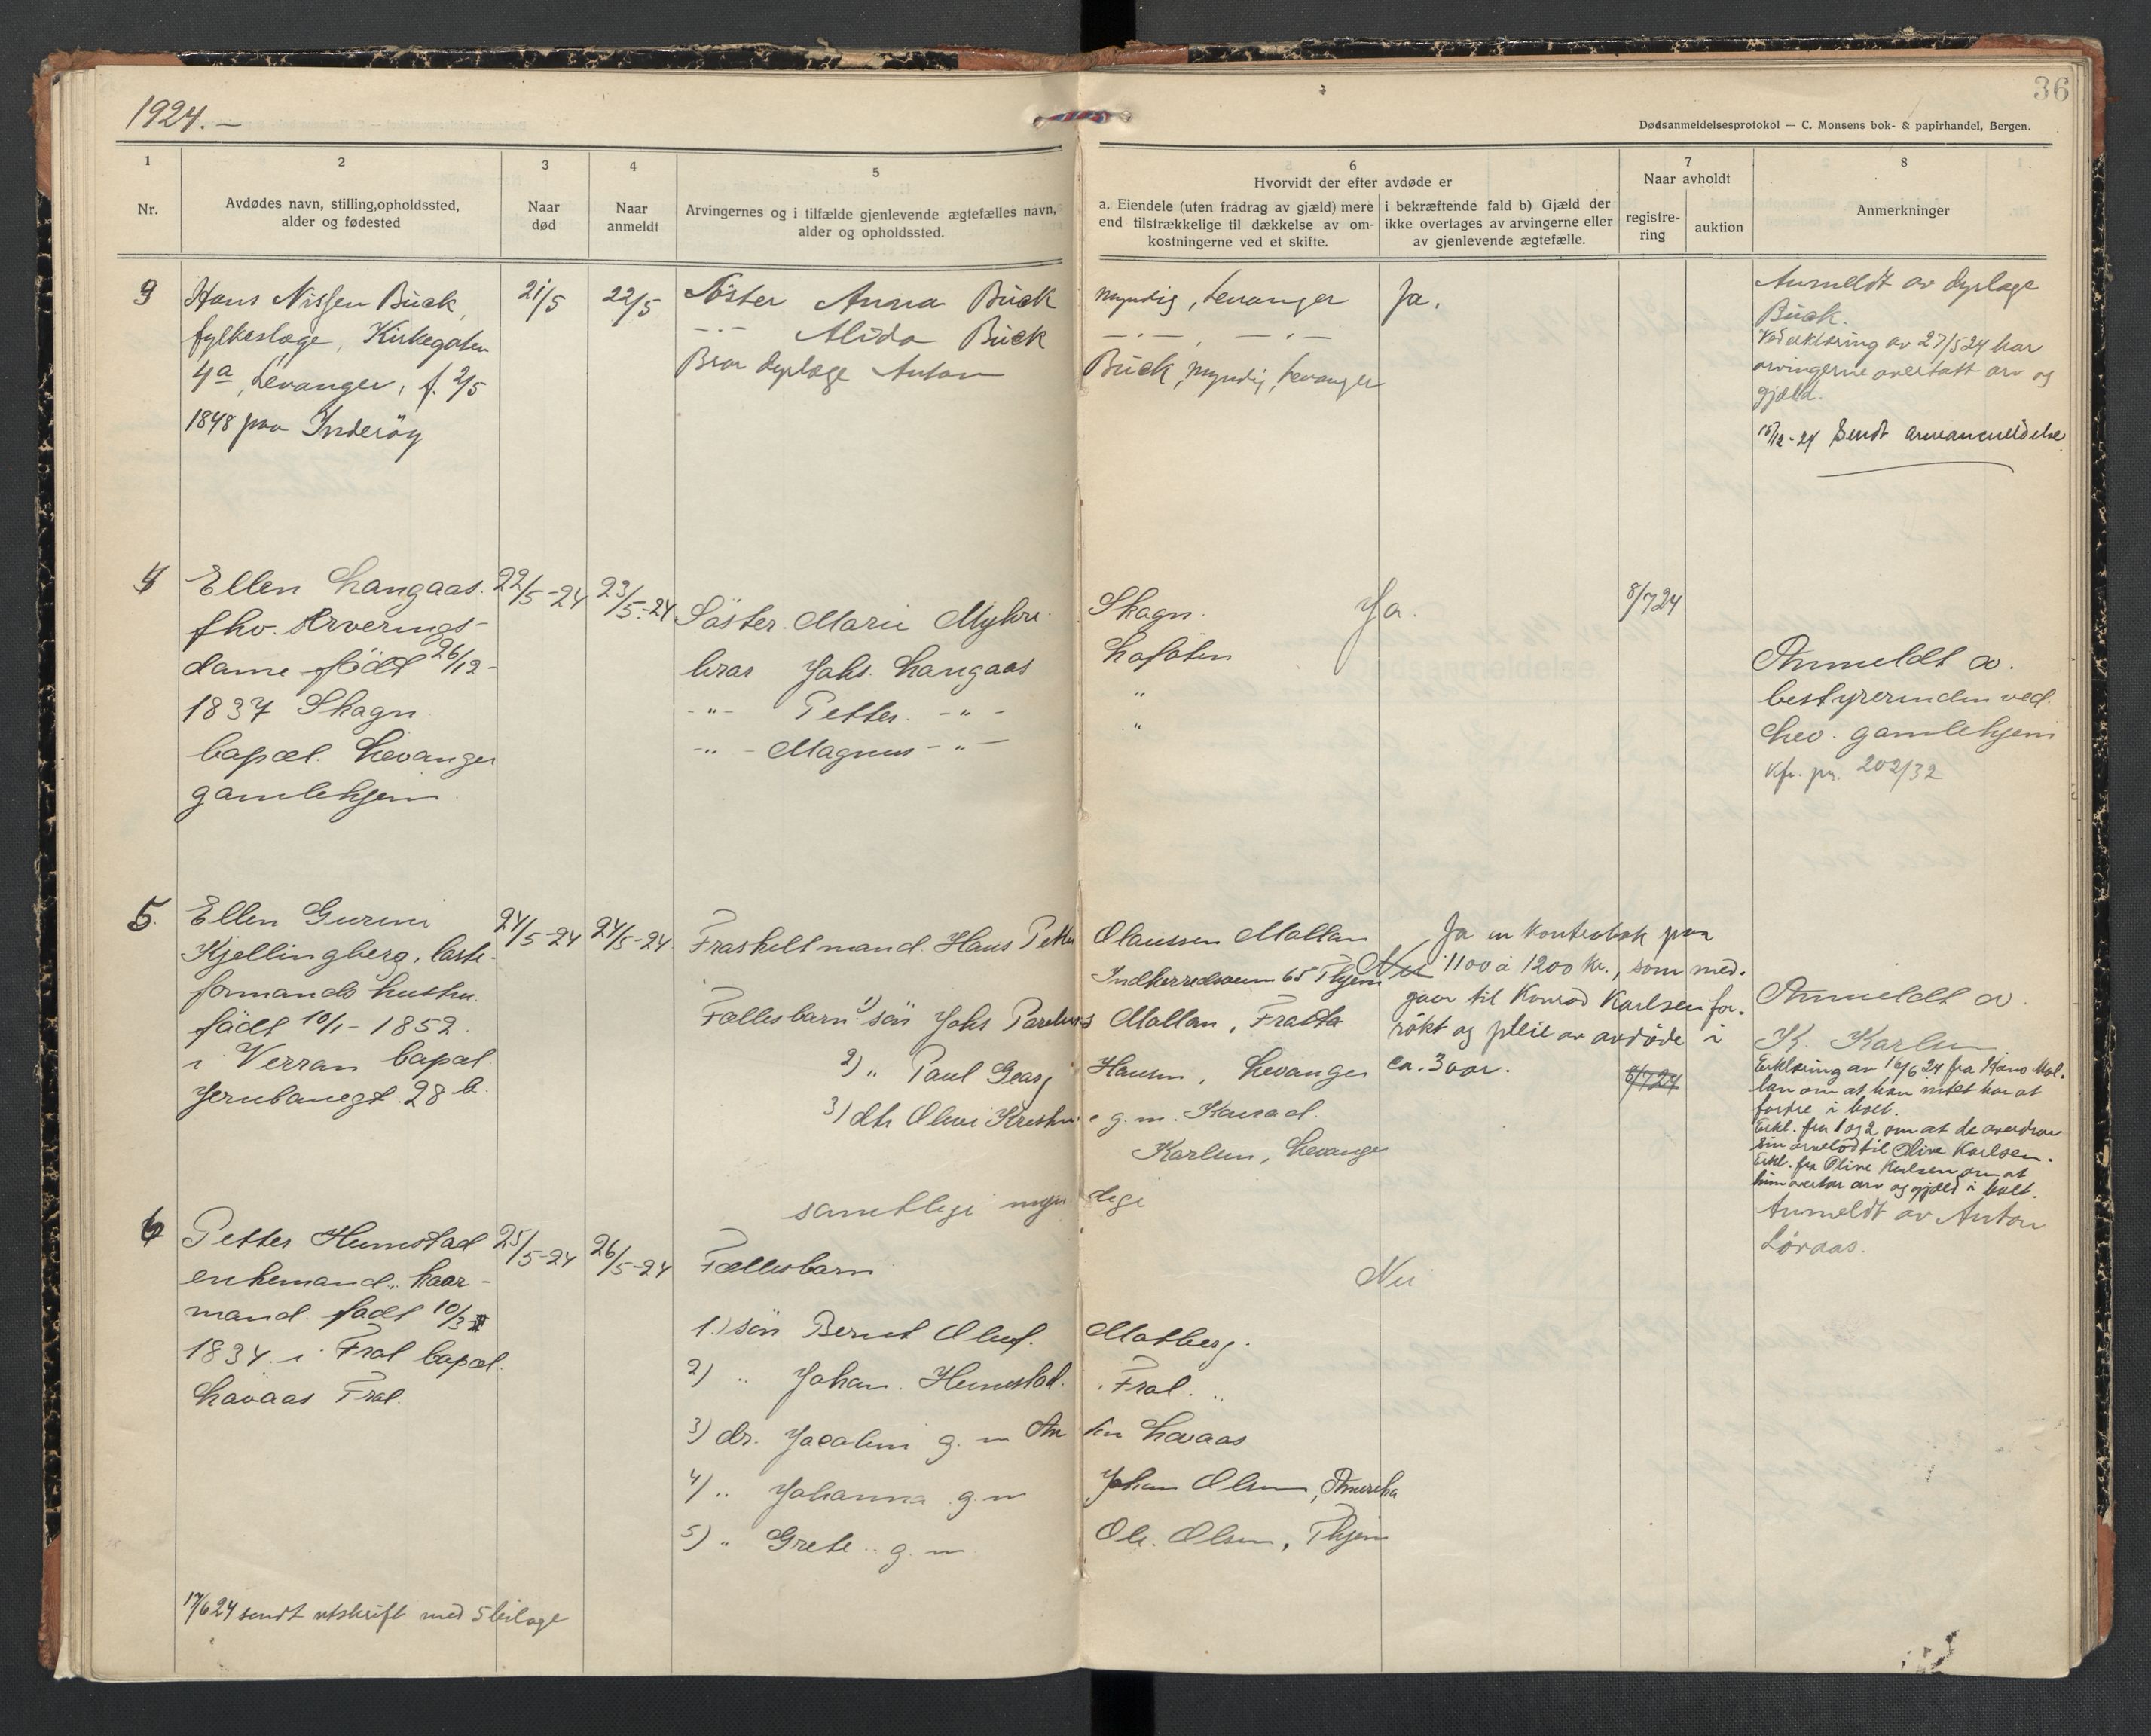 1924.-
36
Dødsanmeldelsesprotokol — C. Monsens bok- & papirhandel, Bergen.
1
Nr.
2
Avdødes navn, stilling, opholdssted,
alder og fødested
3
Naar
død
4
Naar
anmeldt
5
Arvingernes og i tilfælde gjenlevende ægtefælles navn,
alder og opholdssted.
6
Hvorvidt der efter avdøde er
a. Eiendele (uten fradrag av gjæld) mere
end tilstrækkelige til dækkelse av om-
kostningerne ved et skifte.
i bekræftende fald b) Gjæld der
ikke overtages av arvingerne eller
av gjenlevende ægtefælle.
7
Naar avholdt
registre-
ring
auktion
8
Anmerkninger
3
Hans Nissen Buck,
fylkeslæge, Kirkegaten
4a, Levanger, f. 2/5
1848 paa Inderöy
21/5
22/5
Söster Anna Buck myndig, Levanger
-"- Alida Buck -"- -"-
Bror dyrlæge Anton Buck, myndig, Levanger
Ja.
Anmeldt av dyrlæge
Buck.
Ved erklæring av 27/5 24 har
arvingerne overtatt arv og
gjæld.
15/12-24 Sendt arveanmeldelse
4
Ellen Langaas.
fhv.
dame födt 26/12-
1837 Skogn
bopæl. Levanger
gamlehjem.
22/5-24
23/5-24
Söster Marie Myhre. Skogn.
bror Johs. Langaas Lofoten
-"- Petter. -"- "
-"- Magnus -"- "
Ja.
8/7 24
Anmeldt av.
bestyrerinden ved.
Lev. gamlehjem
kfr. pr. 202/32
5.
Ellen Gurine
Kjellingberg, laste-
formands hustru.
födt 10/1-1852.
i Verran bopæl
Jernbanegt. 28 b.
24/5-24
24/5-24
Fraskilt mand. Hans Petter Olaussen Mollan
Indherredsveien 65 Thjem
Fællesbarn 1) sön Johs Mollan, Frosta
2) " Paul Georg Hansen, Levanger
3) dtr Olive Kristine g.m. Konrad.
Karlsen, Levanger
samtlige myndige
Nei
Ja en kontrabok paa
1100 à 1200 kr., som med-
gaar til Konrad Karlsen for
rökt og pleie av avdöde i
ca. 3 aar.
8/7 24
Anmeldt av.
K. Karlsen
Erklæring av 16/6 24 fra Hans Mol-
lan om at han intet har at
fordre i boet.
Erkl. fra 1 og 2 om at de overdrar
sin arvelod til Olive Karlsen.
Erkl. fra Olive Karlsen om at
hun overtar arv og gjæld i boet.
6
Petter Hemstad
enkemand, kaar-
mand. födt 10/3
1834. i Frol bopæl.
Lövaas Frol.
25/5-24
26/5-24
Fællesbarn
1.) sön Bernt Oluf. Motberg.
2) " Johan. Hemstad. Frol. "
3) dr. Jacobine g. m Anton Lövaas
4) " Johanna g. m Johan Olsen, Amerika
5) " Grete " g. m. Ole. Olsen, Thjem
Nei
Anmeldt av Anton
Lövaas.
17/6 24 sendt utskrift med 5 bilage